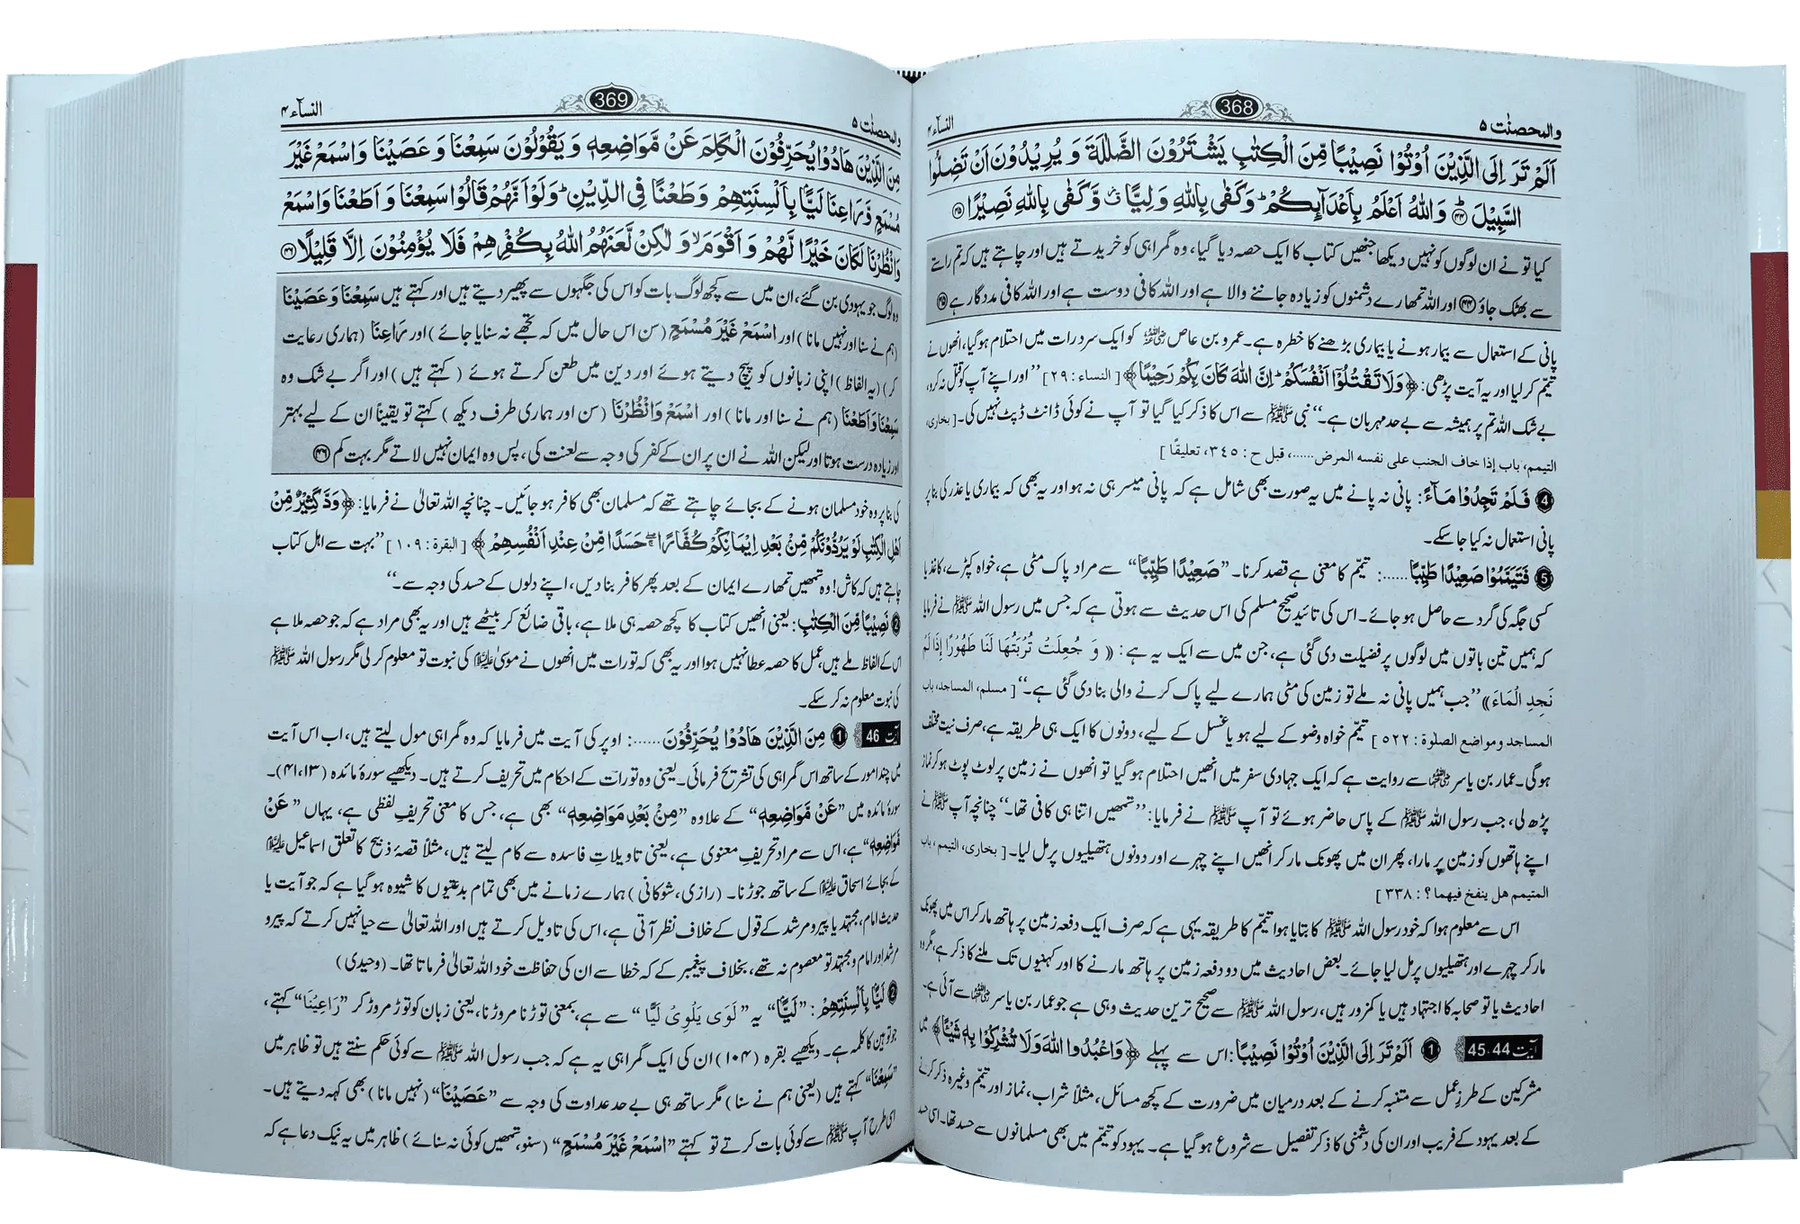 والمحصنٰت ۵
368
النسآء ۴
اَلَمْ تَرَ اِلَى الَّذِيْنَ اُوْتُوْا نَصِيْبًا مِّنَ الْكِتٰبِ يَشْتَرُوْنَ الضَّلٰلَةَ وَ يُرِيْدُوْنَ اَنْ تَضِلُّوا
السَّبِيْلَ ؕ۴۴ وَاللّٰهُ اَعْلَمُ بِاَعْدَآىِٕكُمْ ؕ وَكَفٰى بِاللّٰهِ وَلِيًّا ٘ۙ وَّكَفٰى بِاللّٰهِ نَصِيْرًا ۴۵
کیا تو نے ان لوگوں کو نہیں دیکھا جنھیں کتاب کا ایک حصہ دیا گیا، وہ گمراہی کو خریدتے ہیں اور چاہتے ہیں کہ تم راستے
سے بھٹک جاؤ ۴۴ اور اللہ تمھارے دشمنوں کو زیادہ جاننے والا ہے اور اللہ کافی دوست ہے اور اللہ کافی مددگار ہے ۴۵
پانی کے استعمال سے بیمار ہونے یا بیماری بڑھنے کا خطرہ ہے۔ عمرو بن عاص رضی اللہ عنہ کو ایک سرد رات میں احتلام ہوگیا، انھوں نے
تیمم کرلیا اور یہ آیت پڑھی: ﴿وَلَا تَقْتُلُوْۤا اَنْفُسَكُمْ ؕ اِنَّ اللّٰهَ كَانَ بِكُمْ رَحِيْمًا﴾ [ النساء : ۲۹ ] ’’اور اپنے آپ کو قتل نہ کرو،
بے شک اللہ تم پر ہمیشہ سے بے حد مہربان ہے۔‘‘ نبی ﷺ سے اس کا ذکر کیا گیا تو آپ نے کوئی ڈانٹ ڈپٹ نہیں کی۔ [ بخاری،
التیمم، باب إذا خاف الجنب علی نفسه المرض......، قبل ح : ۳٤٥، تعلیقًا ]
4 فَلَمْ تَجِدُوْا مَآءً : پانی نہ پانے میں یہ صورت بھی شامل ہے کہ پانی میسر ہی نہ ہو اور یہ بھی کہ بیماری یا عذر کی بنا پر
پانی استعمال نہ کیا جا سکے۔
5 فَتَيَمَّمُوْا صَعِيْدًا طَيِّبًا ......: تیمم کا معنی ہے قصد کرنا۔ ’’صَعِيْدًا طَيِّبًا‘‘ سے مراد پاک مٹی ہے، خواہ کپڑے، کاغذ یا
کسی جگہ کی گرد سے حاصل ہو جائے۔ اس کی تائید صحیح مسلم کی اس حدیث سے ہوتی ہے کہ جس میں رسول اللہ ﷺ نے فرمایا
کہ ہمیں تین باتوں میں لوگوں پر فضیلت دی گئی ہے، جن میں سے ایک یہ ہے : « وَ جُعِلَتْ تُرْبَتُهَا لَنَا طَهُوْرًا إِذَا لَمْ
نَجِدِ الْمَاءَ » ’’جب ہمیں پانی نہ ملے تو زمین کی مٹی ہمارے لیے پاک کرنے والی بنا دی گئی ہے۔‘‘ [ مسلم، المساجد، باب
المساجد ومواضع الصلوة : ۵۲۲ ] تیمم خواہ وضو کے لیے ہو یا غسل کے لیے، دونوں کا ایک ہی طریقہ ہے، صرف نیت مختلف
ہوگی۔ عمار بن یاسر رضی اللہ عنہما سے روایت ہے کہ ایک جہادی سفر میں انھیں احتلام ہو گیا تو انھوں نے زمین پر لوٹ پوٹ ہو کر نماز
پڑھ لی، جب رسول اللہ ﷺ کے پاس حاضر ہوئے تو آپ ﷺ نے فرمایا : ’’تمھیں اتنا ہی کافی تھا۔‘‘ چنانچہ آپ ﷺ نے
اپنے ہاتھوں کو زمین پر مارا، پھر ان میں پھونک مار کر انھیں اپنے چہرے اور دونوں ہتھیلیوں پر مل لیا۔ [ بخاری، التیمم، باب
المتیمم هل ینفخ فیهما؟ : ۳۳۸ ]
اس سے معلوم ہوا کہ خود رسول اللہ ﷺ کا بتایا ہوا تیمم کا طریقہ یہی ہے کہ صرف ایک دفعہ زمین پر ہاتھ مار کر اس میں پھونک
مار کر چہرے اور ہتھیلیوں پر مل لیا جائے۔ بعض احادیث میں دو دفعہ زمین پر ہاتھ مارنے کا اور کہنیوں تک ملنے کا ذکر ہے، مگر وہ
احادیث یا تو صحابہ کا اجتہاد ہیں یا کمزور ہیں، رسول اللہ ﷺ سے صحیح ترین حدیث وہی ہے جو عمار بن یاسر رضی اللہ عنہما سے آئی ہے۔
آیت 45،44 1 اَلَمْ تَرَ اِلَى الَّذِيْنَ اُوْتُوْا نَصِيْبًا : اس سے پہلے ﴿وَاعْبُدُوا اللّٰهَ وَلَا تُشْرِكُوْا بِهٖ شَيْـًٔا﴾ میں
مشرکین کے طرزِ عمل سے متنبہ کرنے کے بعد درمیان میں ضرورت کے کچھ مسائل، مثلاً شراب، نماز اور تیمم وغیرہ ذکر کرنے
کے بعد یہود کے فریب اور ان کی دشمنی کا ذکر تفصیل سے شروع ہو گیا ہے۔ یہود کو تیمم میں بھی مسلمانوں سے حسد تھا۔ اسی حسد
والمحصنٰت ۵
369
النسآء ۴
مِنَ الَّذِيْنَ هَادُوْا يُحَرِّفُوْنَ الْكَلِمَ عَنْ مَّوَاضِعِهٖ وَ يَقُوْلُوْنَ سَمِعْنَا وَ عَصَيْنَا وَ اسْمَعْ غَيْرَ
مُسْمَعٍ وَّ رَاعِنَا لَيًّۢا بِاَلْسِنَتِهِمْ وَ طَعْنًا فِي الدِّيْنِ ؕ وَ لَوْ اَنَّهُمْ قَالُوْا سَمِعْنَا وَ اَطَعْنَا وَ اسْمَعْ
وَ انْظُرْنَا لَكَانَ خَيْرًا لَّهُمْ وَ اَقْوَمَ ۙ وَ لٰكِنْ لَّعَنَهُمُ اللّٰهُ بِكُفْرِهِمْ فَلَا يُؤْمِنُوْنَ اِلَّا قَلِيْلًا ۴۶
وہ لوگ جو یہودی بن گئے، ان میں سے کچھ لوگ بات کو اس کی جگہوں سے پھیر دیتے ہیں اور کہتے ہیں سَمِعْنَا وَ عَصَيْنَا
(ہم نے سنا اور نہیں مانا) اور اسْمَعْ غَيْرَ مُسْمَعٍ (سن اس حال میں کہ تجھے نہ سنایا جائے) اور رَاعِنَا (ہماری رعایت
کر) (یہ الفاظ) اپنی زبانوں کو پیچ دیتے ہوئے اور دین میں طعن کرتے ہوئے (کہتے ہیں) اور اگر بے شک وہ
سَمِعْنَا وَ اَطَعْنَا (ہم نے سنا اور مانا) اور اسْمَعْ وَانْظُرْنَا (سن اور ہماری طرف دیکھ) کہتے تو یقیناً ان کے لیے بہتر
اور زیادہ درست ہوتا اور لیکن اللہ نے ان پر ان کے کفر کی وجہ سے لعنت کی، پس وہ ایمان نہیں لاتے مگر بہت کم ۴۶
کی بنا پر وہ خود مسلمان ہونے کے بجائے چاہتے تھے کہ مسلمان بھی کافر ہو جائیں۔ چنانچہ اللہ تعالیٰ نے فرمایا: ﴿وَدَّ كَثِيْرٌ مِّنْ
اَهْلِ الْكِتٰبِ لَوْ يَرُدُّوْنَكُمْ مِّنْۢ بَعْدِ اِيْمَانِكُمْ كُفَّارًا ۖۚ حَسَدًا مِّنْ عِنْدِ اَنْفُسِهِمْ﴾ [ البقرة : ۱۰۹ ] ’’بہت سے اہل کتاب
چاہتے ہیں کہ کاش! وہ تمھیں تمھارے ایمان کے بعد پھر کافر بنا دیں، اپنے دلوں کے حسد کی وجہ سے۔‘‘
2 نَصِيْبًا مِّنَ الْكِتٰبِ : یعنی انھیں کتاب کا کچھ حصہ ہی ملا ہے، باقی ضائع کر بیٹھے ہیں اور یہ بھی مراد ہے کہ جو حصہ ملا ہے
اس کے الفاظ ملے ہیں، عمل کا حصہ عطا نہیں ہوا اور یہ بھی کہ تورات میں انھوں نے موسیٰ علیہ السلام کی نبوت تو معلوم کرلی مگر رسول اللہ ﷺ
کی نبوت معلوم نہ کر سکے۔
آیت 46 1 مِنَ الَّذِيْنَ هَادُوْا يُحَرِّفُوْنَ ......: اوپر کی آیت میں فرمایا کہ وہ گمراہی مول لیتے ہیں، اب اس آیت
میں چند امور کے ساتھ اس گمراہی کی تشریح فرمائی۔ یعنی وہ تورات کے احکام میں تحریف کرتے ہیں۔ دیکھیے سورۂ مائدہ (۱۳، ۴۱)۔
سورۂ مائدہ میں ’’عَنْ مَّوَاضِعِهٖ‘‘ کے علاوہ ’’مِنْۢ بَعْدِ مَوَاضِعِهٖ‘‘ بھی ہے، جس کا معنی تحریفِ لفظی ہے، یہاں ’’عَنْ
مَّوَاضِعِهٖ‘‘ ہے، اس سے مراد تحریفِ معنوی ہے، یعنی تاویلاتِ فاسدہ سے کام لیتے ہیں، مثلاً قصۂ ذبیح کا تعلق اسماعیل علیہ السلام
کے بجائے اسحاق علیہ السلام کے ساتھ جوڑنا۔ (رازی، شوکانی) ہمارے زمانے میں بھی تمام بدعتیوں کا شیوہ ہو گیا ہے کہ جو آیت یا
حدیث امام، مجتہد یا پیر و مرشد کے قول کے خلاف نظر آتی ہے، اس کی تاویل کرتے ہیں اور اللہ تعالیٰ سے حیا نہیں کرتے کہ پیر و
مرشد اور امام و مجتہد تو معصوم نہ تھے، بخلاف پیغمبر کے کہ خطا سے ان کی حفاظت خود اللہ تعالیٰ فرماتا تھا۔ (وحیدی)
2 لَيًّۢا بِاَلْسِنَتِهِمْ : ’’لَيًّۢا‘‘ یہ ’’لَوَى يَلْوِيْ لَيًّا‘‘ سے ہے، بمعنی توڑنا مروڑنا، یعنی زبان کو توڑ مروڑ کر ’’رَاعِيْنَا‘‘ کہتے،
جو توہین کا کلمہ ہے۔ دیکھیے بقرہ (۱۰۴) ان کی ایک گمراہی یہ ہے کہ جب رسول اللہ ﷺ سے کوئی حکم سنتے ہیں تو ظاہر میں
’’سَمِعْنَا‘‘ کہتے ہیں (یعنی ہم نے سنا) مگر ساتھ ہی بے حد عداوت کی وجہ سے ’’عَصَيْنَا‘‘ (نہیں مانا) بھی کہہ دیتے ہیں۔
اسی طرح آپ ﷺ سے کوئی بات کرتے تو کہتے ’’اسْمَعْ غَيْرَ مُسْمَعٍ‘‘ (سنو، تمھیں کوئی نہ سنائے) ظاہر میں یہ نیک دعا ہے کہ